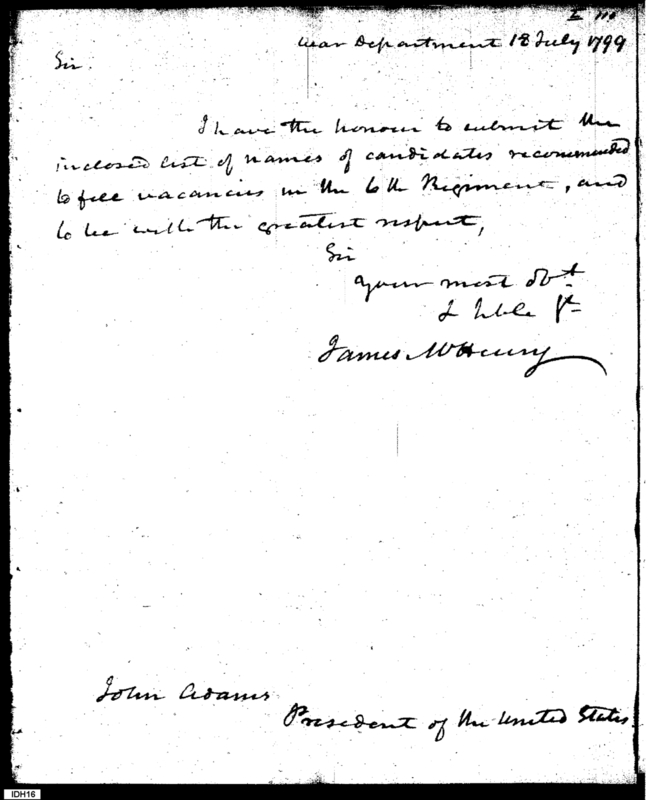 War Department 18 July 1799
Sir.
I have the honour to submit the
inclosed list of names of candidates recommended
to fill vacancies in the 6th Regiment, and
to be with the greatest respect,
Sir
your most obt
& hble St
James McHenry
John Adams
President of the United States.
IDH16